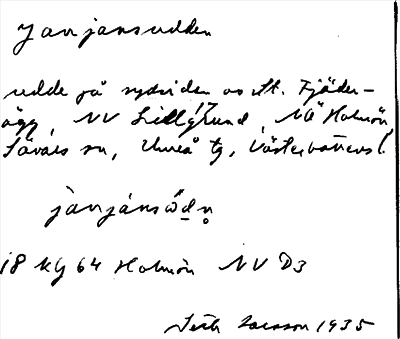 Janjansudden
udde på sydsidan av St. Fjäder-
ägg, NV Lillgrund, NÖ Holmön,
Sävars sn, Umeå tg, Västerbottens l.
jànjánsɷ̈dn̥
18 Kg 64 Holmön NV D3
Larsson 1935